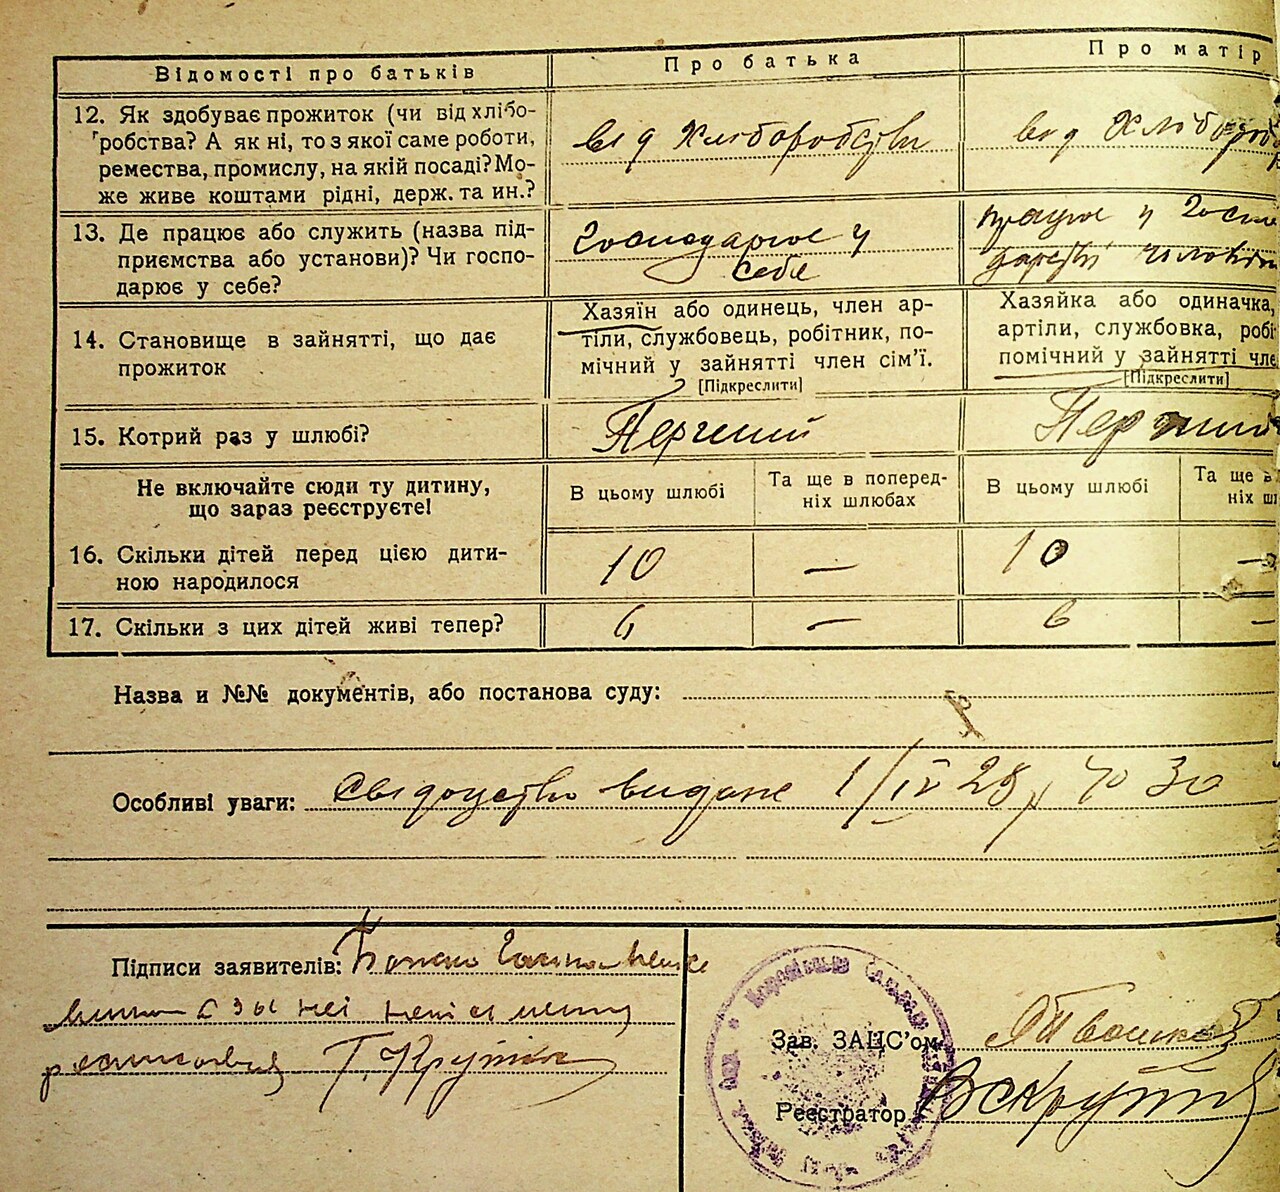 Відомості про батьків
Про батька
Про матір
12. Як здобуває прожиток (чи від хлібо-
робства? А як ні, то з якої саме роботи,
ремества, промислу, на якій посаді? Мо-
же живе коштами рідні, держ. та ин.?
від хліборобства
від хлібороб
13. Де працює або служить (назва під-
приємства або установи)? Чи госпо-
дарює у себе?
господарює у
себе
працює у госпо
дарстві чоловіка
14. Становище в зайнятті, що дає
прожиток
Хазяїн або одинець, член ар-
тіли, службовець, робітник, по-
мічний у зайнятті член сім’ї.
[Підкреслити]
Хазяйка або одиначка,
артіли, службовка, робіт
помічний у зайнятті чле
[Підкреслити]
15. Котрий раз у шлюбі?
Перший
Перший
Не включайте сюди ту дитину,
що зараз реєструєте!
В цьому шлюбі
Та ще в поперед-
ніх шлюбах
В цьому шлюбі
Та ще в
ніх шл
16. Скільки дітей перед цією дити-
ною народилося
10
—
10
—
17. Скільки з цих дітей живі тепер?
6
—
6
—
Назва и №№ документів, або постанова суду:
Особливі уваги: свідоцтво видане 1/IV 28 30
Підписи заявителів:
Т. Крутій
Зав. ЗАЦС’ом
Реєстратор